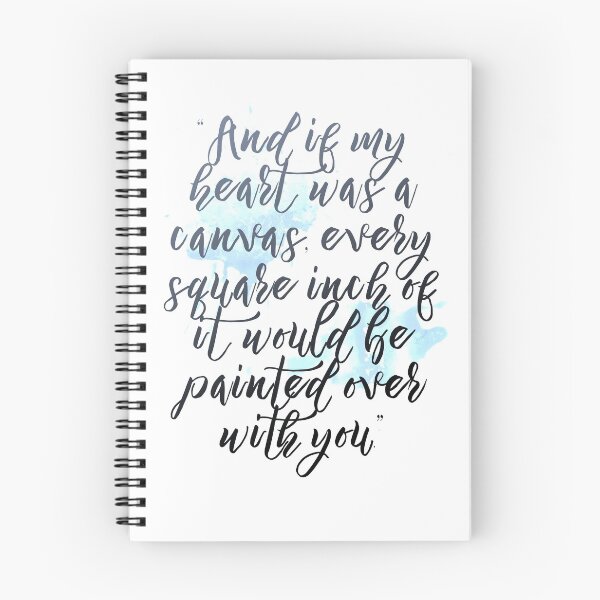 “And if my
heart was a
canvas, every
square inch of
it would be
painted over
with you.”